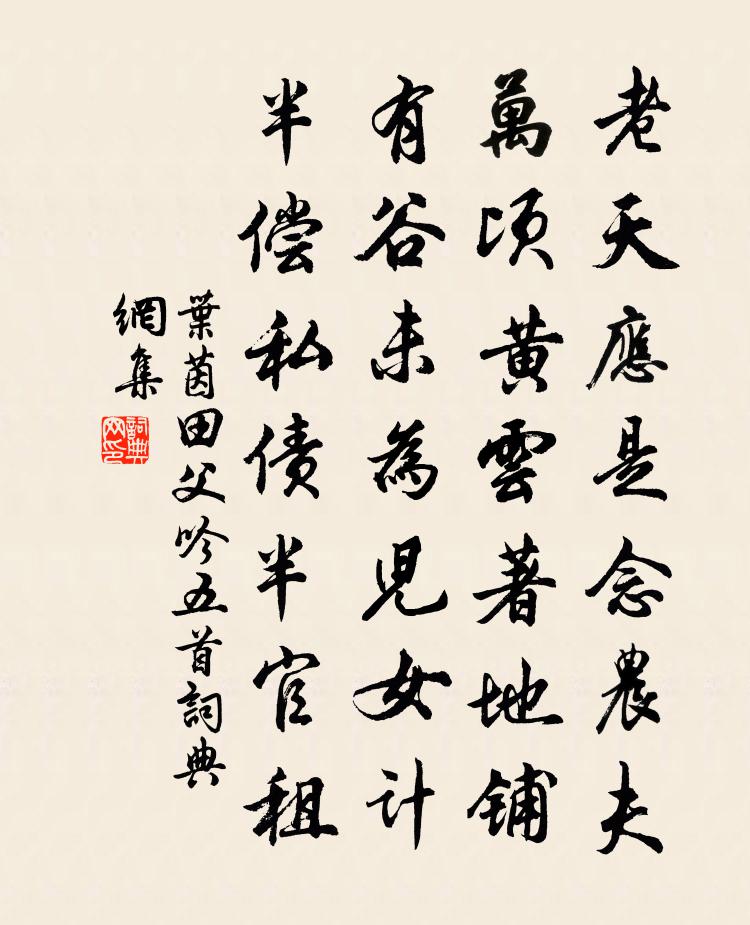 老天應是念農夫
萬頃黃雲著地铺
有谷未為兒女计
半偿私债半官租
葉茵田父吟五首詞典
網集
詞典网印